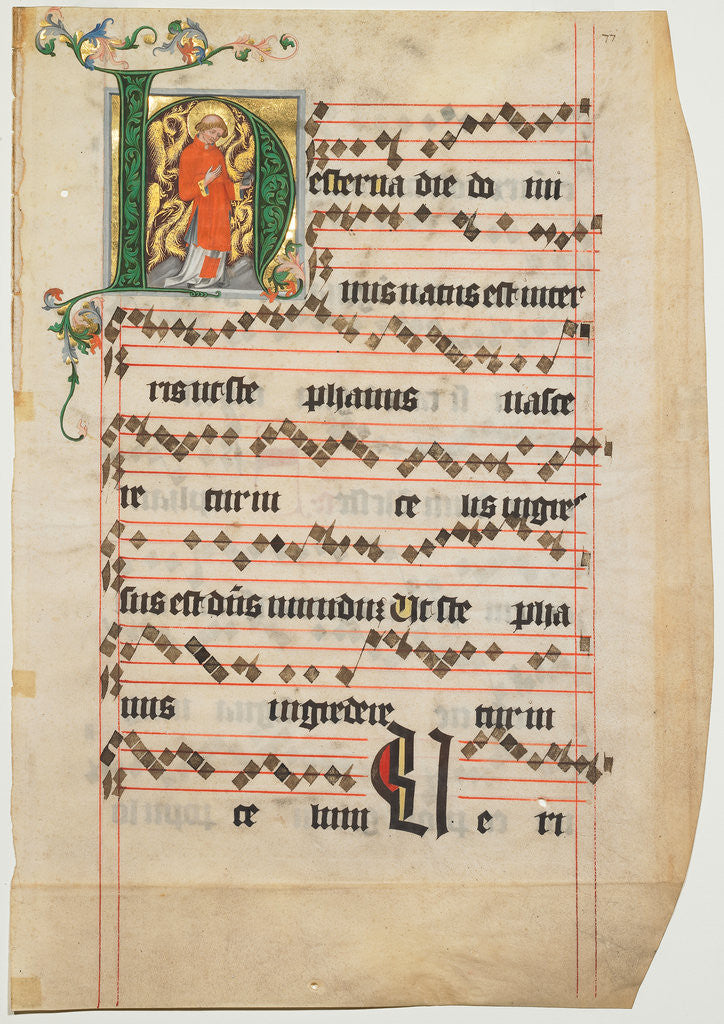 77
Hesterna die do mi
nus natus est in ter
ris ut ste phanus nasce
re tur in ce lis in gre
sus est dñs mundum Ut ste pha
nus ingredere tur in
ce lum U e ri